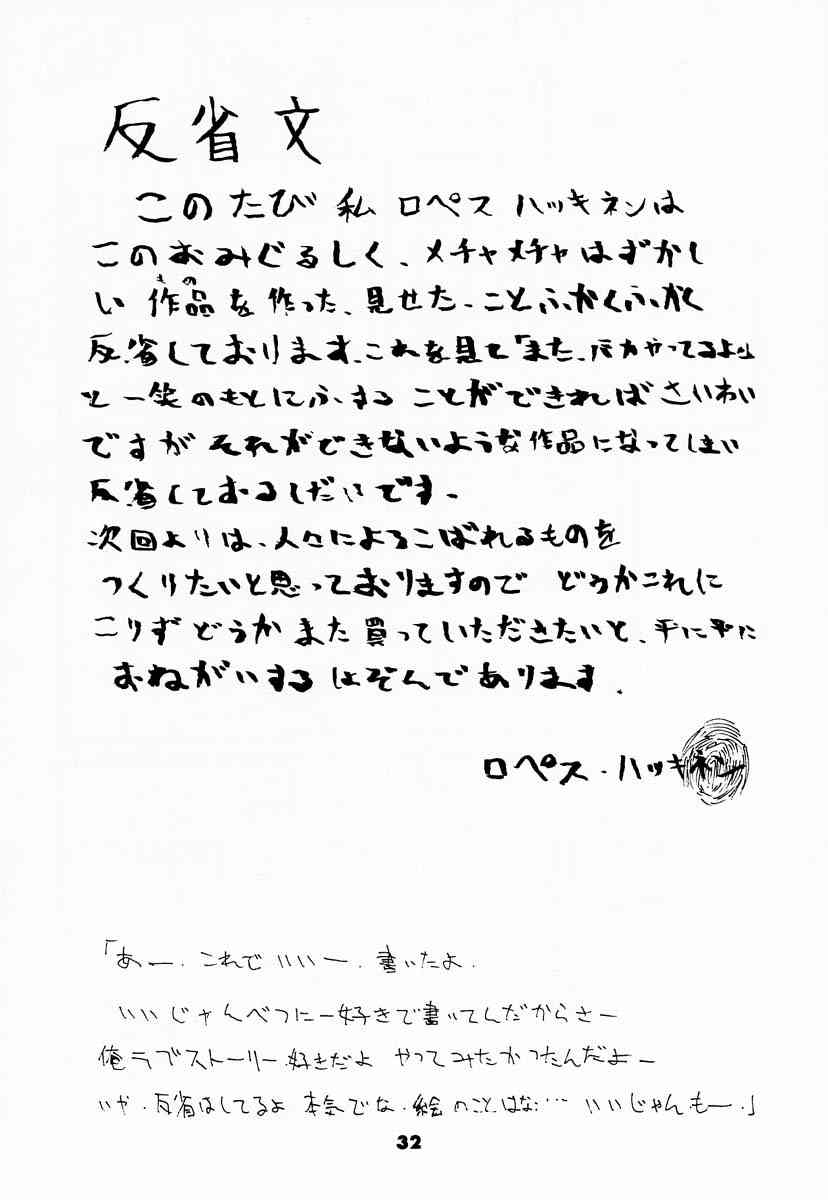 反省文
このたび 私 ロペス ハッキネンは
このおみぐるしく、メチャメチャはずかし
い 作品を作った、見せた、ことふかくふかく
もの
反省しております。これを見て「また、バカやってるよ」
と一笑のもとにふすることができればさいわい
ですが それができないような作品になってしまい
反省しておるしだいです。
次回よりは、人々によろこばれるものを
つくりたいと思っておりますので どうかこれに
こりずどうか また 買っていただきたいと、平に平に
おねがいするしょぞんであります。
ロペス・ハッキネン
「あー、これでいいー、書いたよ、
いいじゃんべつにー好きで書いてんだからさー
俺ラブストーリー好きだよ やってみたかったんだよー
いや、反省はしてるよ 本気でな、絵のことはな…いいじゃんもー。」
32